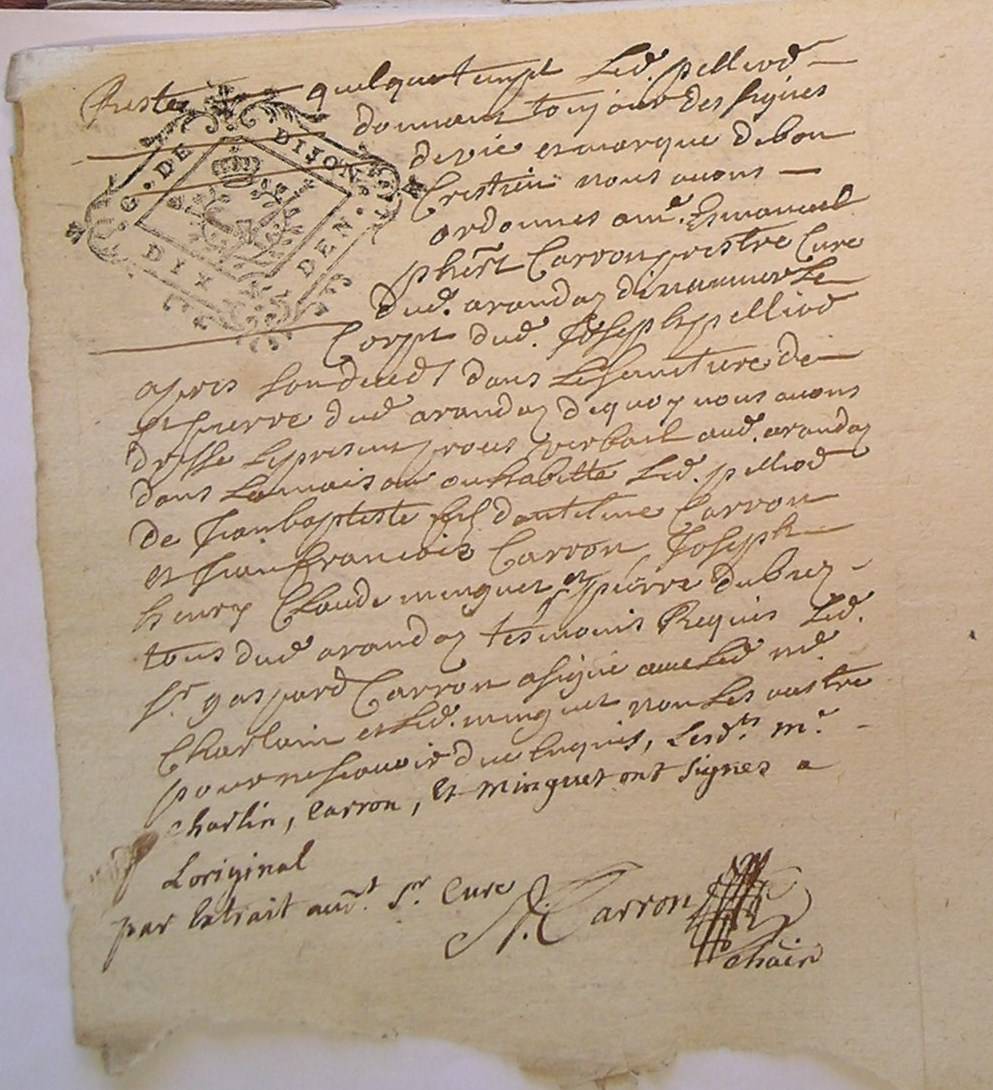 Reste quelque tempt Led. pelliod
G. DE DIJON
DIX DEN.
donnant toujour des signes
de vie et marque debon
Crestien nous avons
ordonnes a mr. Emanuel
phert Carron prestre Cure
dud. arandaz dinnummer Le
Corpt dud. Joseph pelliod
apres Son deced dans Le Semitiere de
St pierre dud arandaz dequoy nous avons
dresse Le present proces verbail aud. arandaz
dans La maison ou habitte Led. pelliod
de Jean baptiste fils dantelme Carron
et Jean francois Carron Joseph
henry Claude minguet et pierre dubrez
tous dud arandaz tesmoins Requis Led.
Sr. gaspard Carron a signe avec Led mr.
Charlain et Led. minguet non Les autre
pour ne scavoir du ce Enquis, Lesdts. mr.
Charlin, Carron, Et minguet ont signes a
Loriginal
par Extrait aud. Sr. Cure
Carron